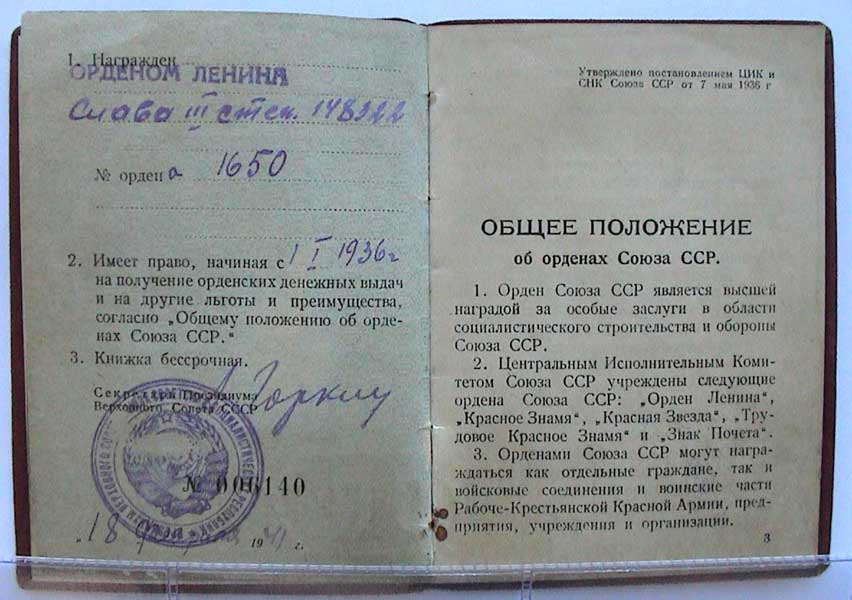 1. Награжден
ОРДЕНОМ ЛЕНИНА
Слава III степ. 148322
№ ордена 1650
2. Имеет право, начиная с 1 I 1936 г
на получение орденских денежных выдач
и на другие льготы и преимущества,
согласно „Общему положению об орде-
нах Союза ССР.“
3. Книжка бессрочная.
Секретарь Президиума
Верховного Совета СССР
Горкин
№ 006140
„18 19 г.
Утверждено постановлением ЦИК и
СНК Союза ССР от 7 мая 1936 г
ОБЩЕЕ ПОЛОЖЕНИЕ
об орденах Союза ССР.
1. Орден Союза ССР является высшей
наградой за особые заслуги в области
социалистического строительства и обороны
Союза ССР.
2. Центральным Исполнительным Коми-
тетом Союза ССР учреждены следующие
ордена Союза ССР: „Орден Ленина“,
„Красное Знамя“, „Красная Звезда“, „Тру-
довое Красное Знамя“ и „Знак Почета“.
3. Орденами Союза ССР могут награ-
ждаться как отдельные граждане, так и
войсковые соединения и воинские части
Рабоче-Крестьянской Красной Армии, пред-
приятия, учреждения и организации.
3